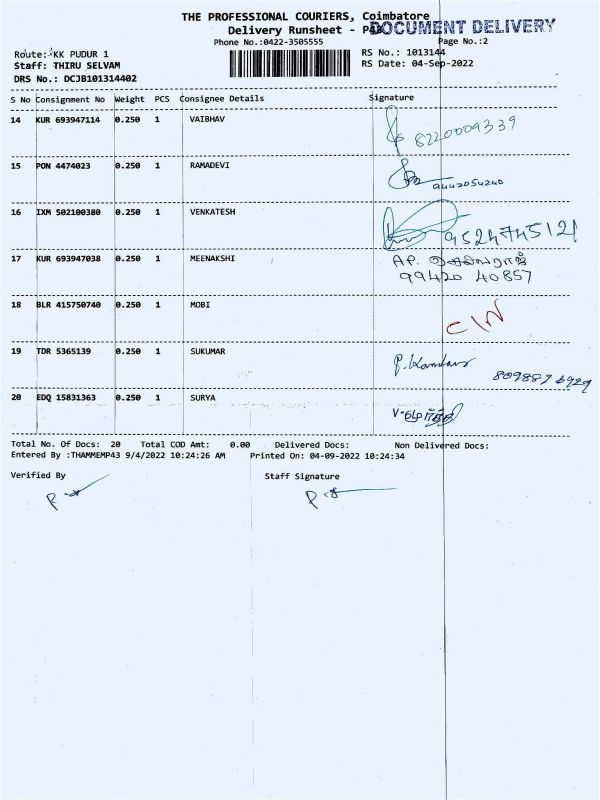 THE PROFESSIONAL COURIERS, Coimbatore
DOCUMENT DELIVERY
Delivery Runsheet -
Phone No.:0422-3505555
Page No.:2
Route: KK PUDUR 1
RS No.: 1013144
Staff: THIRU SELVAM
RS Date: 04-Sep-2022
DRS No.: DCJB101314402
S No Consignment No Weight PCS Consignee Details Signature
14 KUR 693947114 0.250 1 VAIBHAV 8220009339
15 PON 4474023 0.250 1 RAMADEVI 9442054240
16 IXM 502100380 0.250 1 VENKATESH 9524745121
17 KUR 693947038 0.250 1 MEENAKSHI AP.
99420 40857
18 BLR 415750740 0.250 1 MOBI
C/N
19 TDR 5365139 0.250 1 SUKUMAR
20 EDQ 15831363 0.250 1 SURYA
V. மூர்த்தி
Total No. Of Docs: 20 Total COD Amt: 0.00 Delivered Docs: Non Delivered Docs:
Entered By :THAMMEMP43 9/4/2022 10:24:26 AM Printed On: 04-09-2022 10:24:34
Verified By Staff Signature